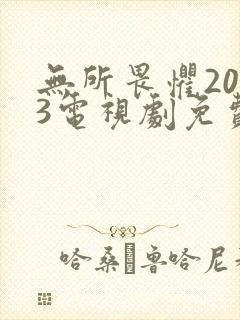 無所畏懼20
3電視劇免費
哈桑·魯哈尼